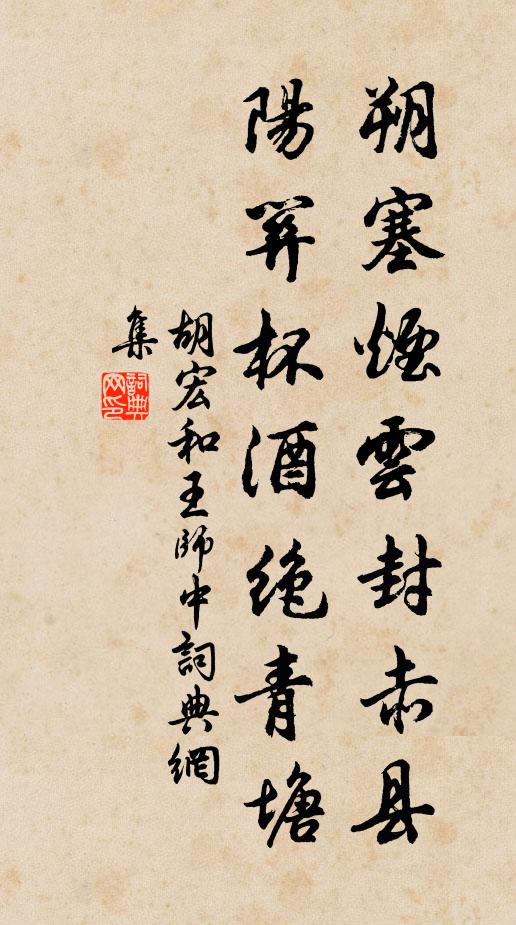 朔塞煙雲封赤县
陽関杯酒绝青塘
胡宏和王師中詞典網
集
詞典网印